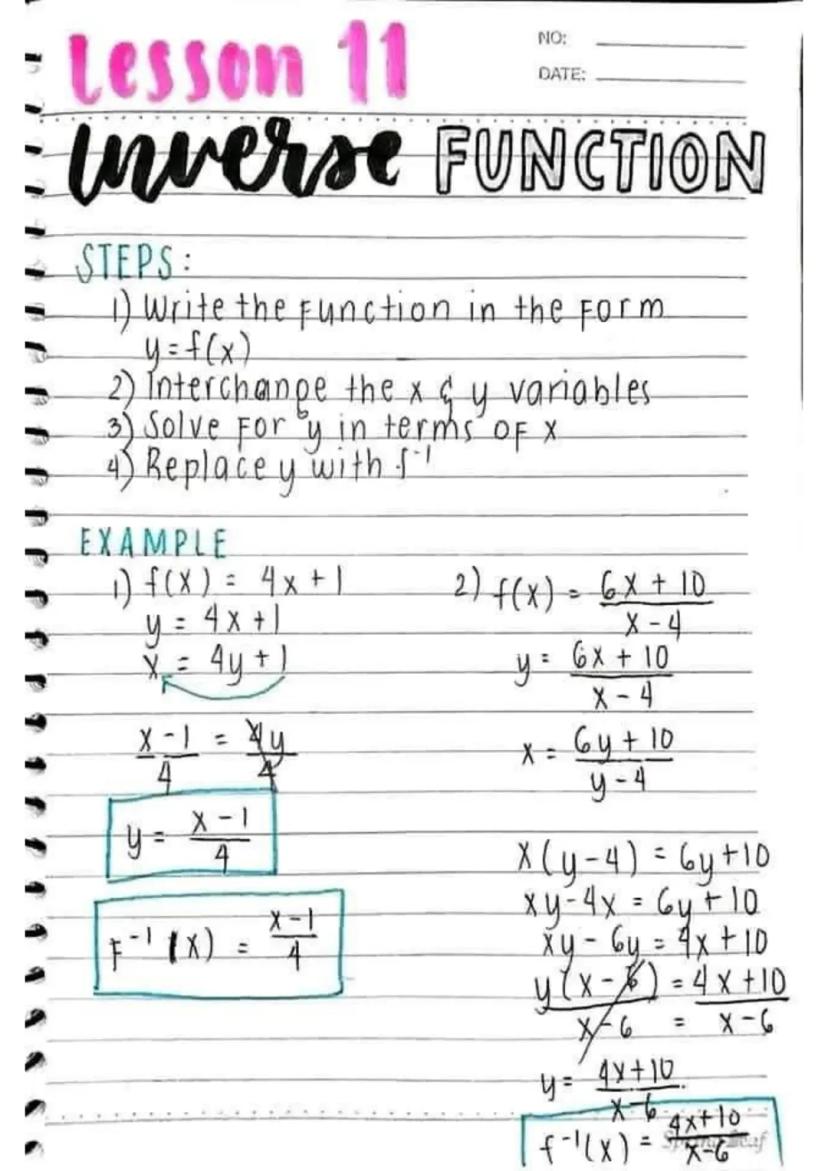 Lesson 11
NO:
DATE:
Inverse FUNCTION
STEPS:
1) Write the function in the form
y = f(x)
2) Interchange the x & y variables
3) Solve for y in terms of x
4) Replace y with f⁻¹
EXAMPLE
1) f(x) = 4x + 1
y = 4x + 1
x = 4y + 1
x - 1 / 4 = 4y / 4
y = x - 1 / 4
F⁻¹(x) = x - 1 / 4
2) f(x) = 6x + 10 / x - 4
y = 6x + 10 / x - 4
x = 6y + 10 / y - 4
x(y - 4) = 6y + 10
xy - 4x = 6y + 10
xy - 6y = 4x + 10
y(x - 6) / x - 6 = 4x + 10 / x - 6
y = 4x + 10 / x - 6
f⁻¹(x) = 4x + 10 / x - 6